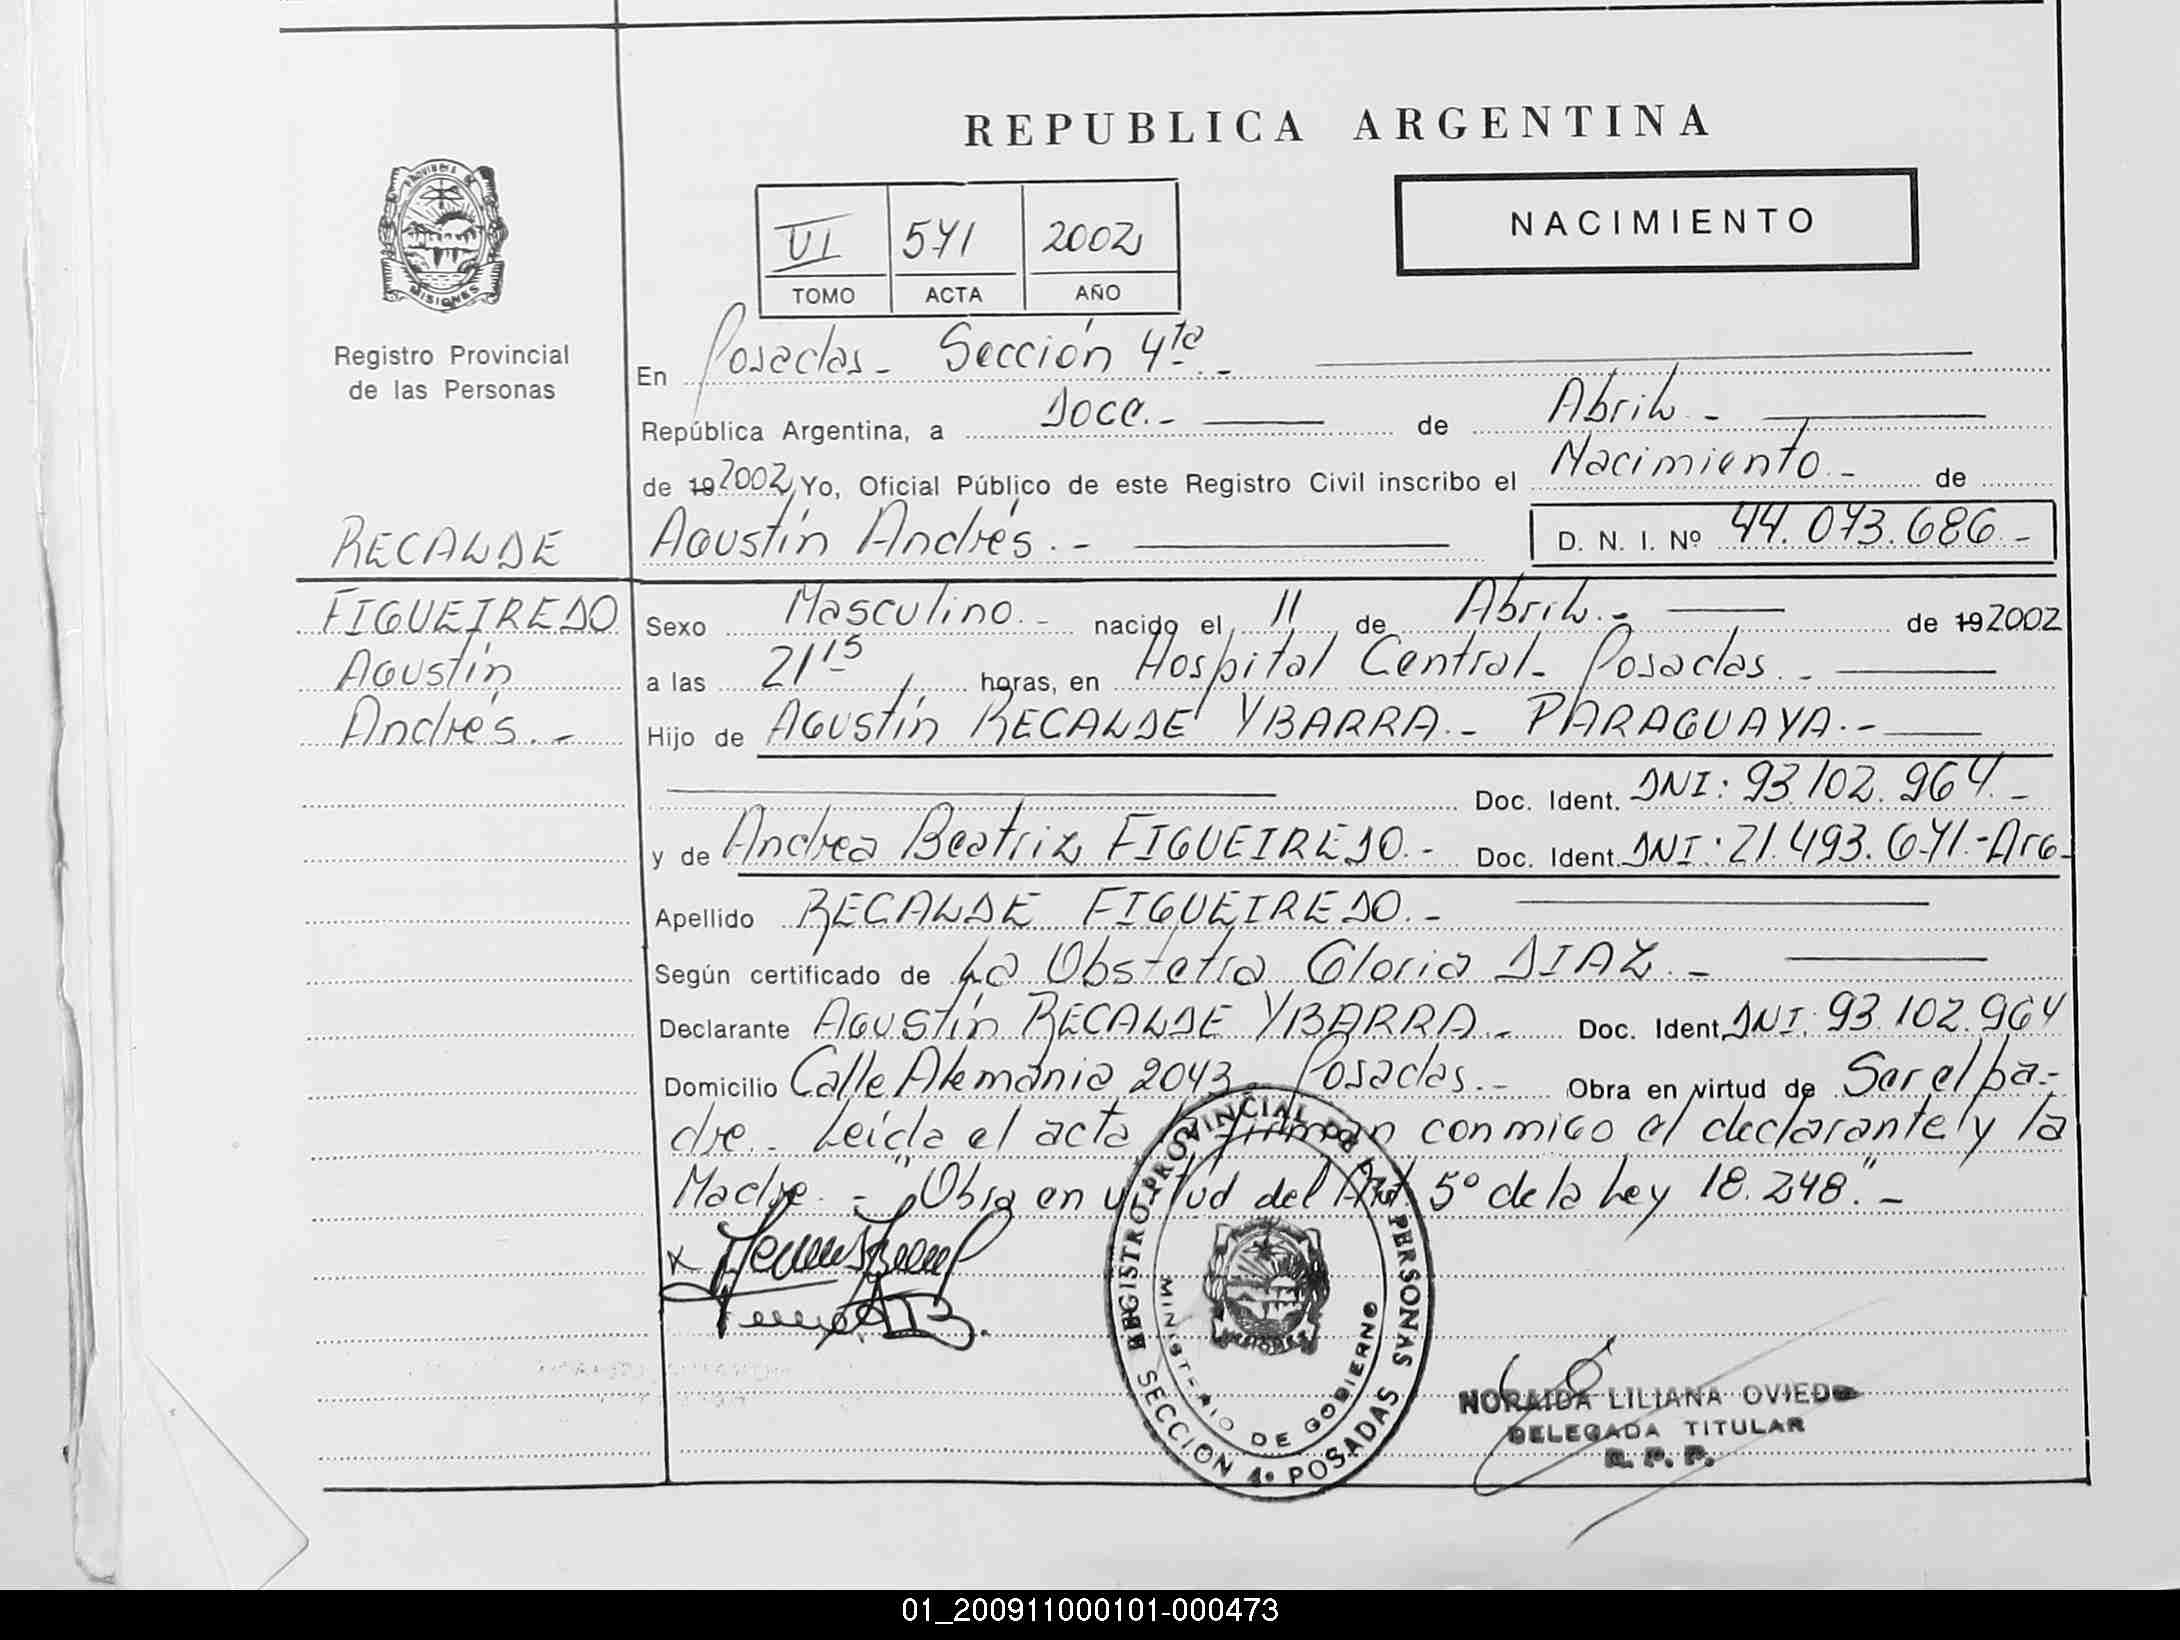 REPUBLICA ARGENTINA
NACIMIENTO
VI 571 2002
TOMO ACTA AÑO
PROVINCIA DE
MISIONES
Registro Provincial
de las Personas
En Posadas - Sección 4ta -
República Argentina, a Doce.- de Abril -
de 19 2002 Yo, Oficial Público de este Registro Civil inscribo el Nacimiento - de
RECALDE Agustín Andrés. - D. N. I. Nº 44.073.686 -
FIGUEIREDO Sexo Masculino. - nacido el 11 de Abril.- de 19 2002
Agustín a las 21 15 horas, en Hospital Central - Posadas. -
Andrés. - Hijo de Agustín RECALDE YBARRA.- PARAGUAYA.-
Doc. Ident. DNI: 93.102.964.-
y de Andrea Beatriz FIGUEIREDO.- Doc. Ident. DNI: 21.493.671.-Arg-
Apellido RECALDE FIGUEIREDO.-
Según certificado de La Obstetra Gloria DIAZ.-
Declarante Agustín RECALDE YBARRA.- Doc. Ident. DNI: 93.102.964
Domicilio Calle Alemania 2043 Posadas.- Obra en virtud de Ser el pa-
dre.- Leída el acta la firman conmigo el declarante y la
Madre. - "Obra en virtud del Art. 5º de la Ley 18.248." -
REGISTRO PROVINCIAL DE LAS PERSONAS
MINISTERIO DE GOBIERNO
SECCION 4º POSADAS
NORAIDA LILIANA OVIEDO
DELEGADA TITULAR
R. P. P.
01_200911000101-000473